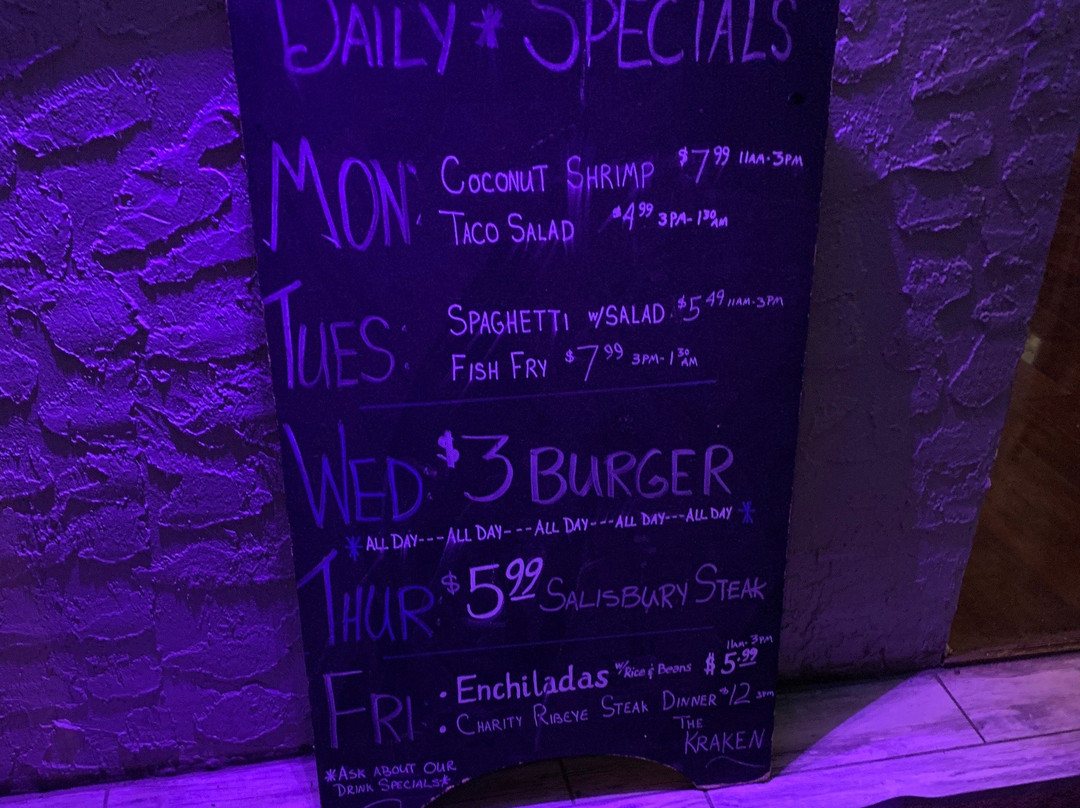 DAILY * SPECIALS
MON: COCONUT SHRIMP $7.99 11AM-3PM
TACO SALAD $4.99 3PM-1:30AM
TUES: SPAGHETTI W/SALAD $5.49 11AM-3PM
FISH FRY $7.99 3PM-1:30AM
WED: $3 BURGER
*ALL DAY---ALL DAY---ALL DAY---ALL DAY---ALL DAY*
THUR: $5.99 SALISBURY STEAK
11am-3pm
FRI: • Enchiladas w/Rice & Beans $5.99
• CHARITY RIBEYE STEAK DINNER $12 3PM
THE
KRAKEN
*ASK ABOUT OUR
DRINK SPECIALS*